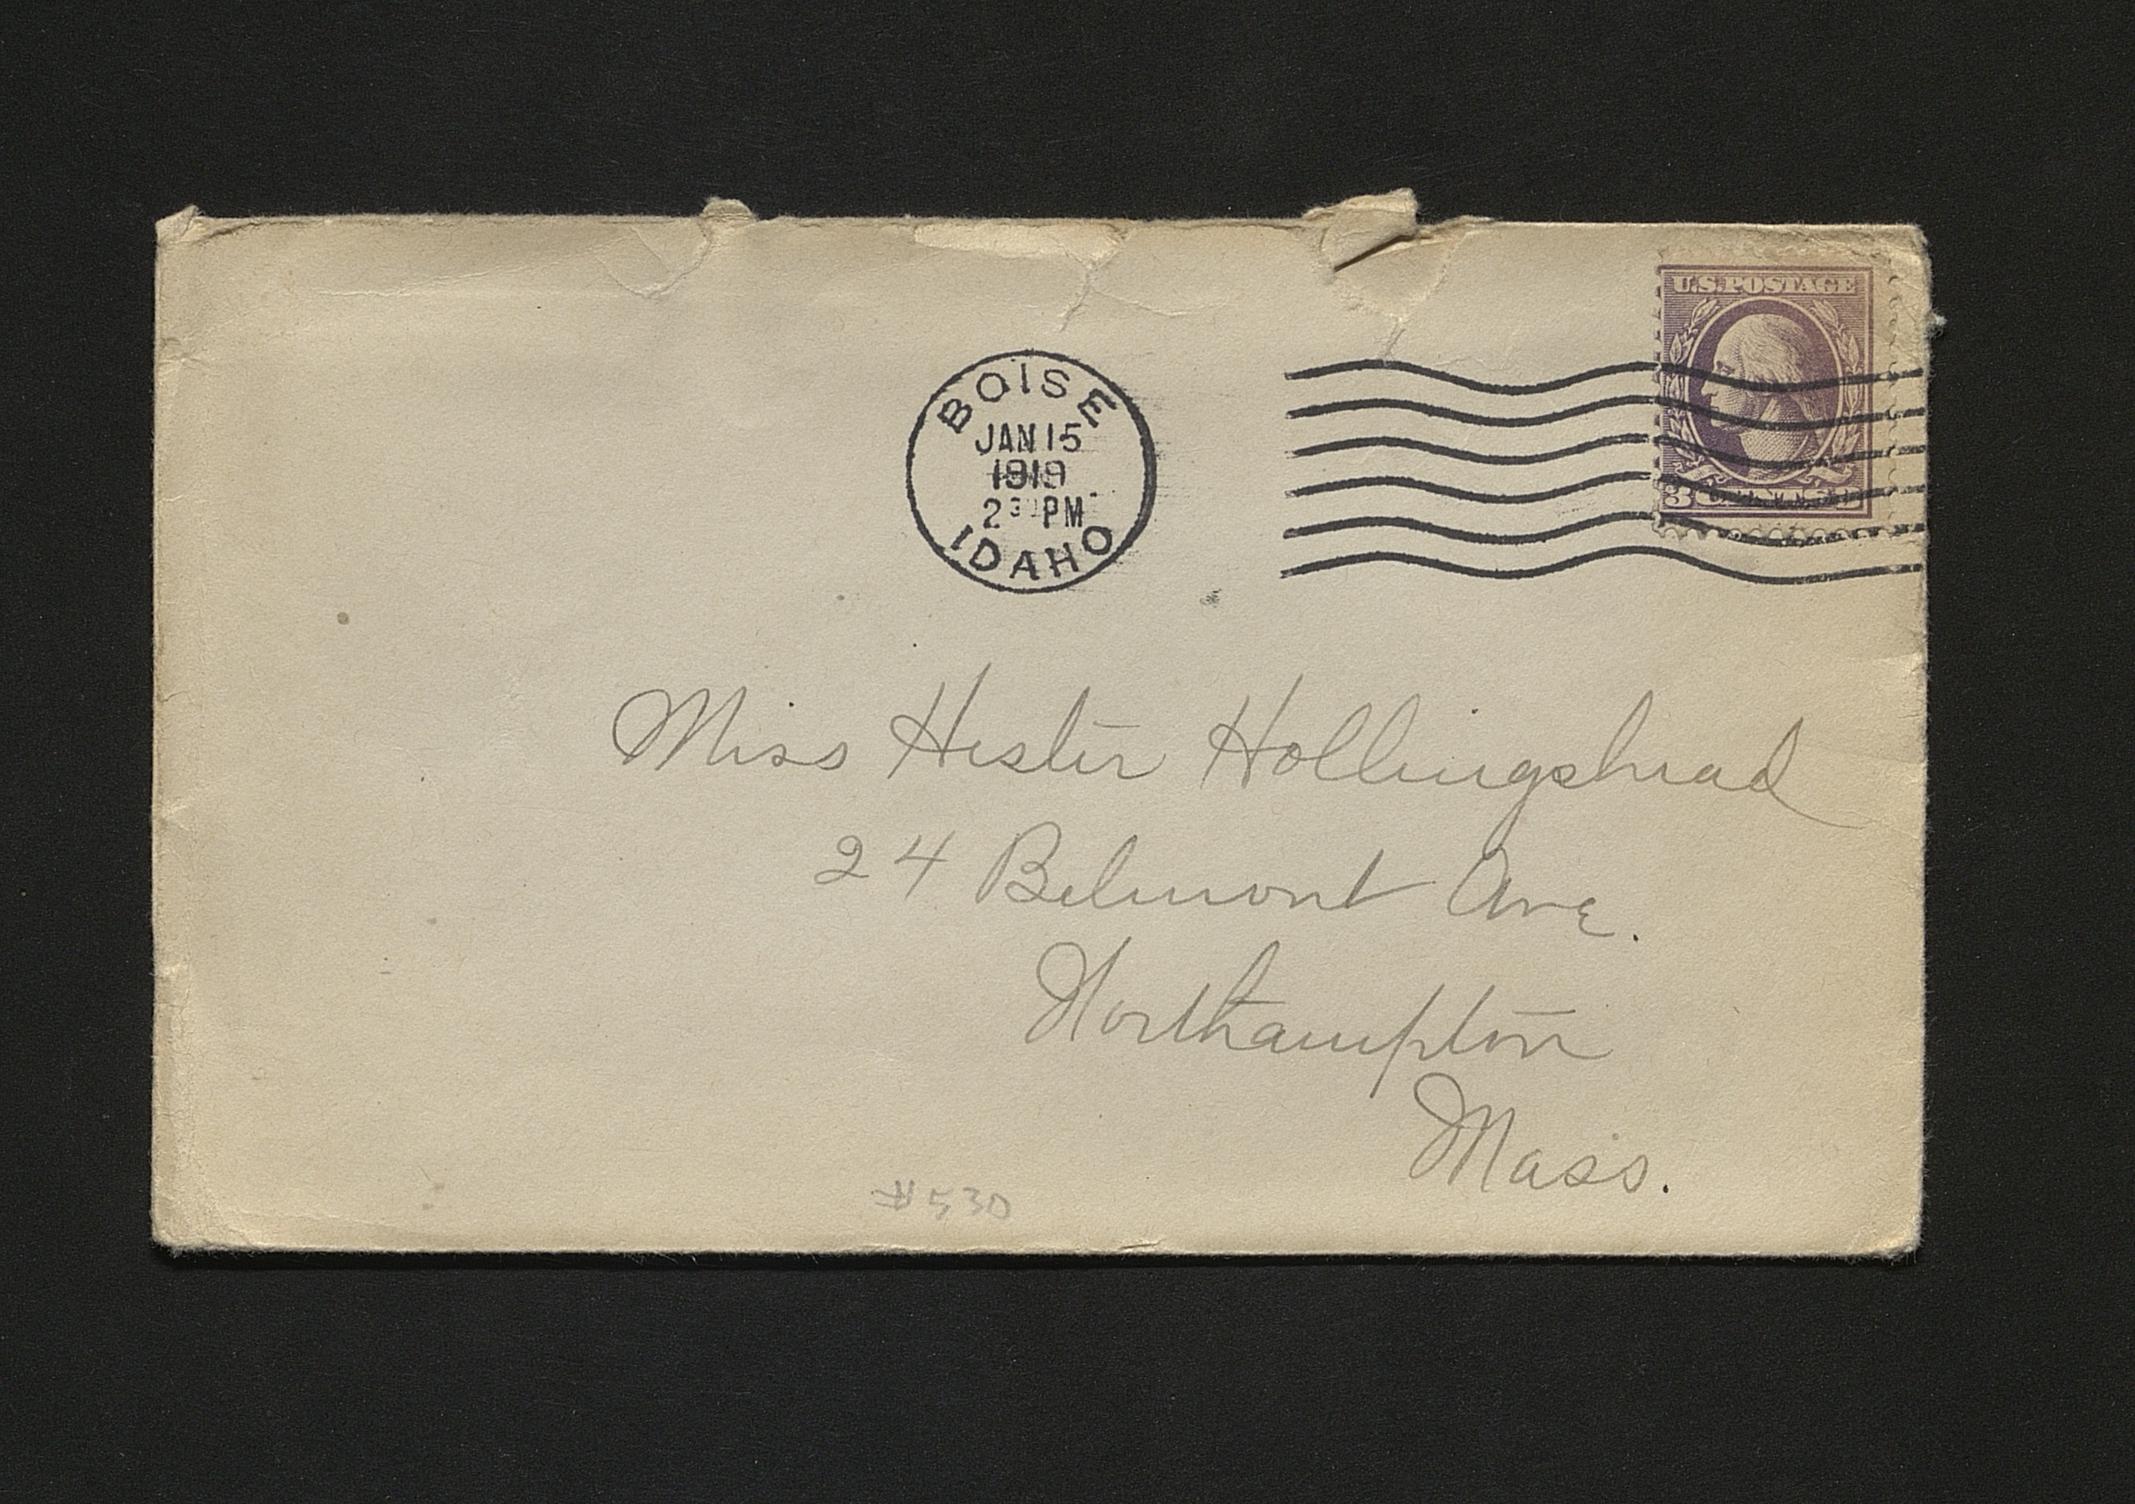 U.S. POSTAGE
BOISE
JAN 15
1919
2 30 PM
IDAHO
3
Miss Hester Hollingshead
24 Belmont Ave.
Northampton
Mass.
#530